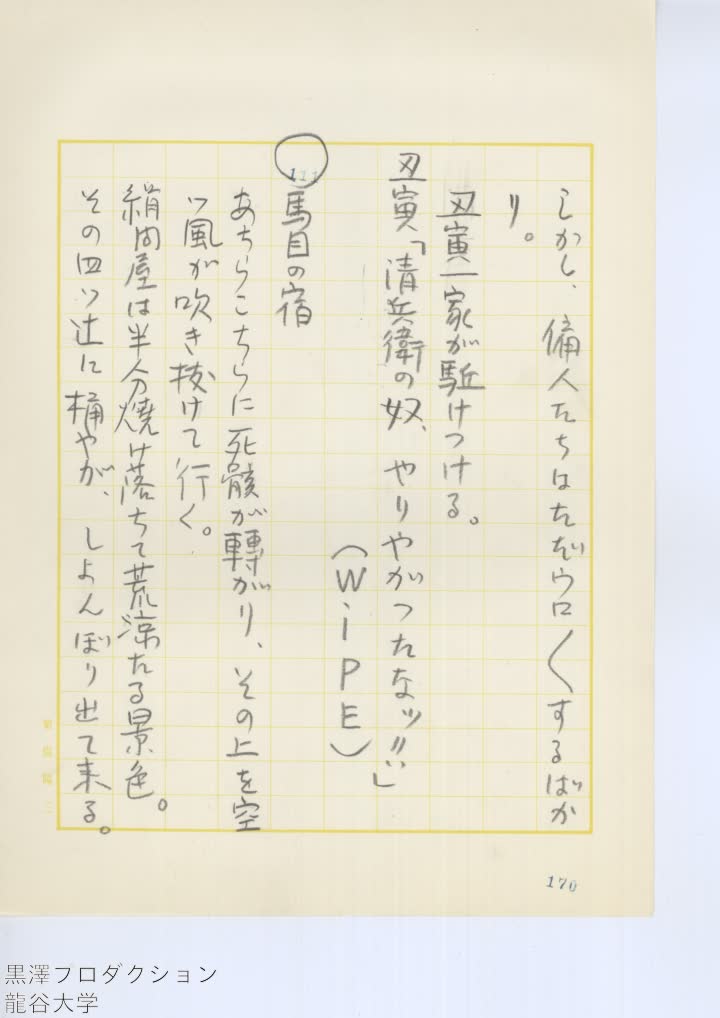 しかし、傭人たちはたゞウロ〳〵するばか
り。
丑寅一家が駈けつける。
丑寅「清兵衛の奴、やりやがつたなッ!!」
(WiPE)
111
馬目の宿
あちらこちらに死骸が轉がり、その上を空
ッ風が吹き抜けて行く。
絹問屋は半分焼け落ちて荒涼たる景色。
その四ツ辻に桶やが、しよんぼり出て来る。
170
黒澤プロダクション
龍谷大学